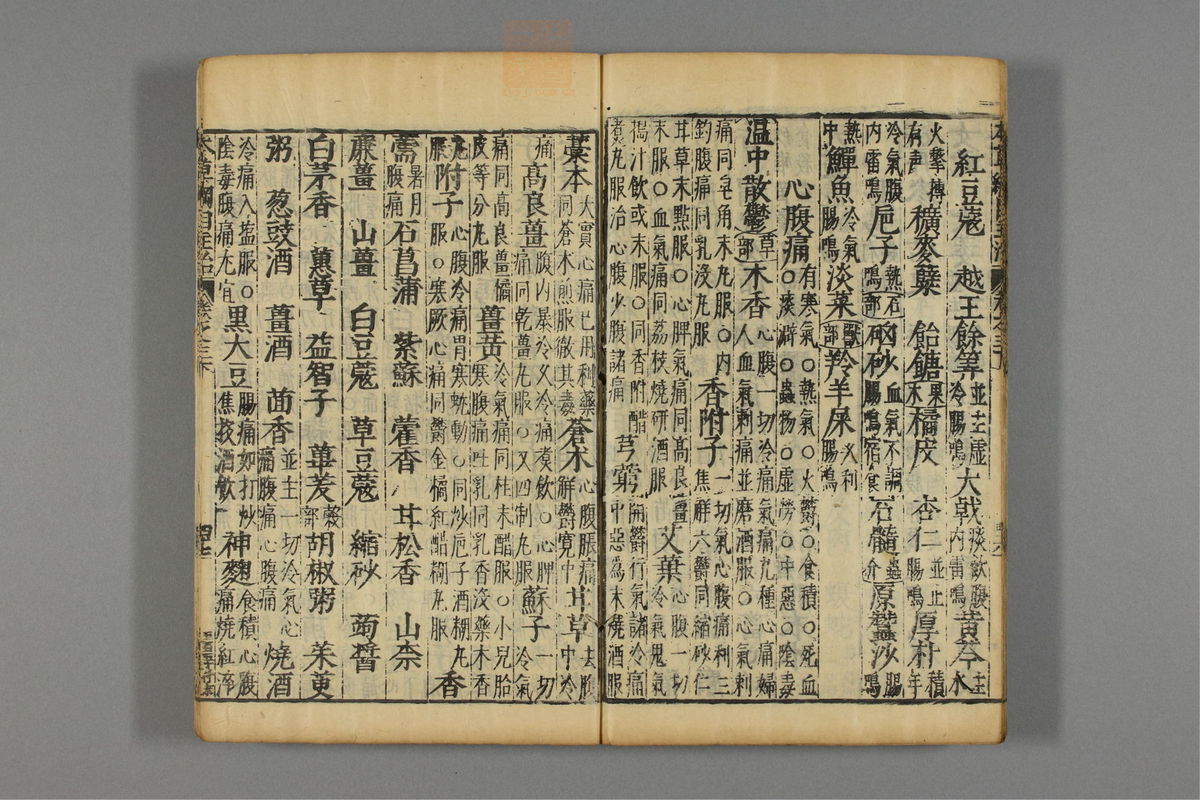 紅豆蔻 越王餘筭並主虛冷腸鳴大戟痰飲腹内雷鳴黃芩主水
火擊搏有聲穬麥糵 飴餹果木橘皮 杏仁並止腸鳴厚朴積年
冷氣腹内雷鳴巵子熱鳴石部硇砂血氣不調腸鳴宿食石髓蟲介原蠶沙腸鳴
熱中鱓魚冷氣腸鳴淡菜獸部羚羊屎久利腸鳴
心腹痛有寒氣○熱氣○火鬱○食積○死血○痰澼○蟲物○虛勞○中惡○陰毒
温中散鬱草部木香心腹一切冷痛氣痛九種心痛婦人血氣刺痛並磨酒服○心氣刺
痛同皂角末丸服○内釣腹痛同乳沒丸服香附子一切氣心腹痛利三焦解六鬱同縮砂仁
甘草末點服○心脾氣痛同高良薑末服○血氣痛同荔枝燒研酒服艾葉心腹一切冷氣鬼氣
搗汁飲或末服○同香附醋煮丸服治心腹少腹諸痛芎藭開鬱行氣諸冷痛中惡爲末燒酒服
藁本大實心痛已用利藥同蒼朮煎服徹其毒蒼朮心腹脹痛解鬱寬中甘草去腹中冷
痛高良薑腹内暴冷久冷痛煮飲○心脾痛同乾薑丸服○又四制丸服蘇子一切冷氣
痛同高良薑橘皮等分丸服薑黃冷氣痛同桂末醋服○小兒胎寒腹痛吐乳同乳香沒藥木香
丸服附子心腹冷痛胃寒蚘動○同炒巵子酒糊丸服○寒厥心痛同鬱金橘紅醋糊丸服香
薷暑月腹痛石菖蒲 紫蘇 藿香 甘松香 山柰
廉薑 山薑 白豆蔻 草豆蔻 縮砂 蒟醬
白茅香 蕙草 益智子 蓽茇穀部胡椒粥 茱萸
粥 葱豉酒 薑酒 茴香並主一切冷氣心痛腹痛心腹痛燒酒
冷痛入盐服○陰毒腹痛尤宜黑大豆腸痛如打炒焦投酒飲神麴食積心腹痛燒紅淬
本草綱目主治